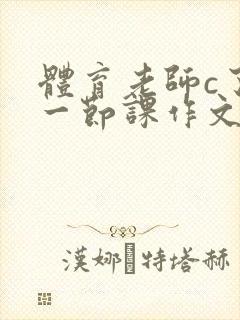 體育老師c
一節課作文
漢娜·特塔赫